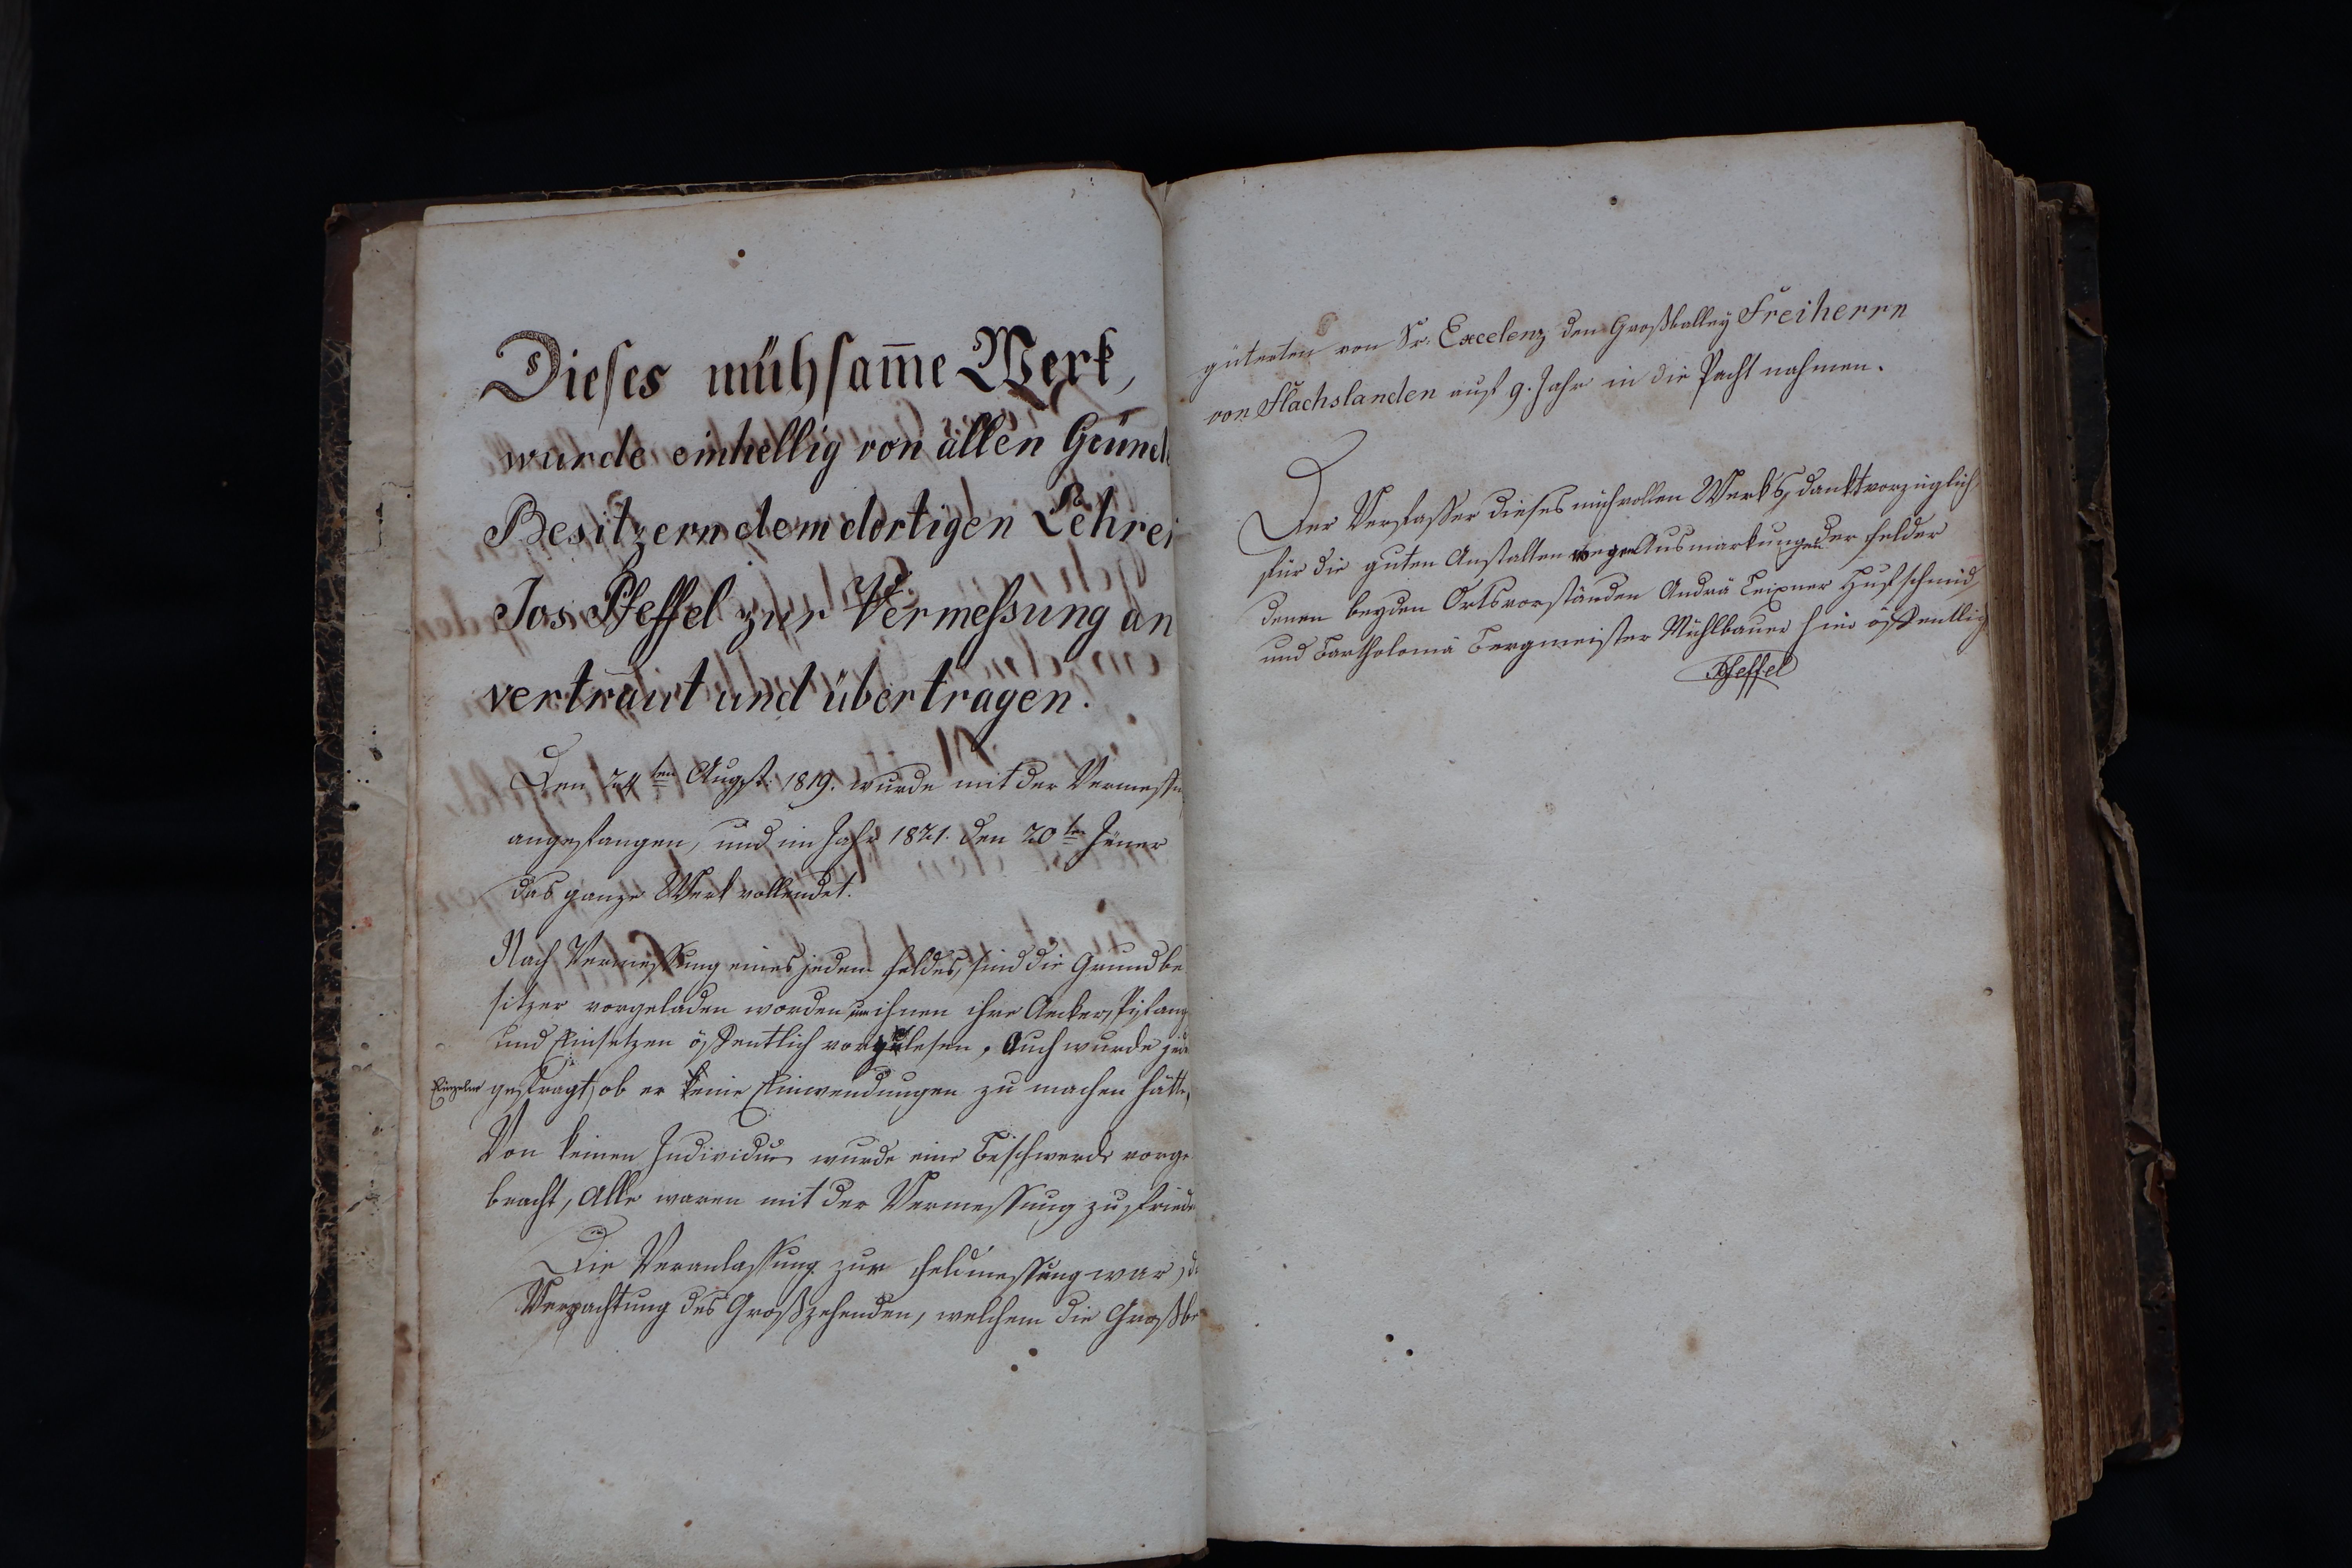 Dieses mühsam̅e Werk,
wurde einhellig von allen Grund
Besitzern dem dortigen Lehrer
Jos. Pfeffel zur Vermeßung an
vertraut und übertragen.
Den 24ten Augst. 1819. wurde mit der Vermessu
angefangen, und im Jahr 1821. den 20ten Jäner
das ganze Werk vollendet.
Nach Vermessung eines jeden Feldes, sind die Grundbe
sitzer vorgeladen worden, um ihnen ihre Aecker,
und öffentlich vorzulesen. Auch wurde jed
Einzelne gefragt, ob er keine Einwendungen zu machen hätte,
Von keinen Individum wurde eine Beschwerde vorge
bracht, Alle waren mit der Vermessung zufriede
Die Veranlassung zur Feldmessung war, d
Verpachtung des Großzehenden, welchem die Großbe
güterten von Sr. Excelenz den Großballey Freiherrn
von Flachslanden auf 9. Jahr in die Pacht nahmen.
Der Verfaßer dieses mühvollen Werks, dankt vorzüglich
für die guten Anstalten wegen Ausmarkungen der Felder
denen beyden Ortsvorständen Andrä Leixner Hufschmid,
und Bartholomä Bergmeister Mühlbauer hier öffentlig
Pfeffel